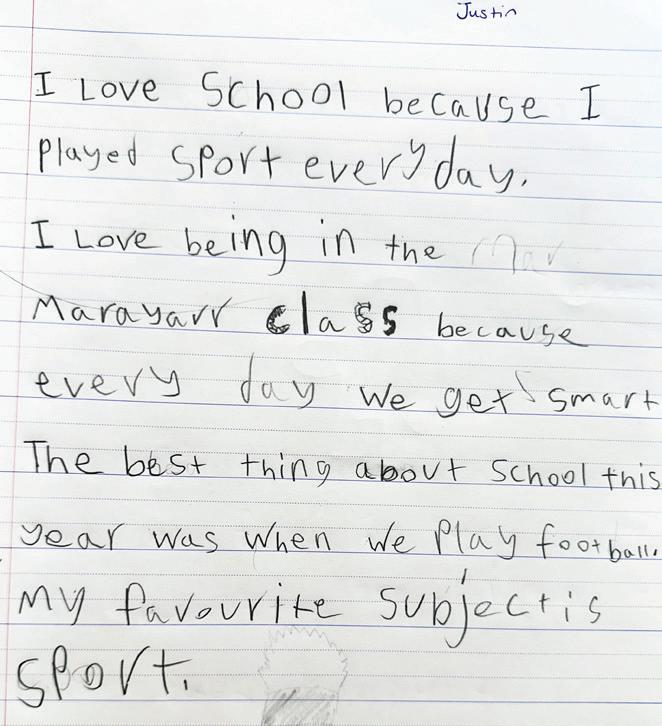 Justin
I Love School because I
played sport everyday.
I Love being in the Mar
Marayarr class because
every day we get smart
The best thing about School this
year was when we play football.
My favourite subject is
sport.